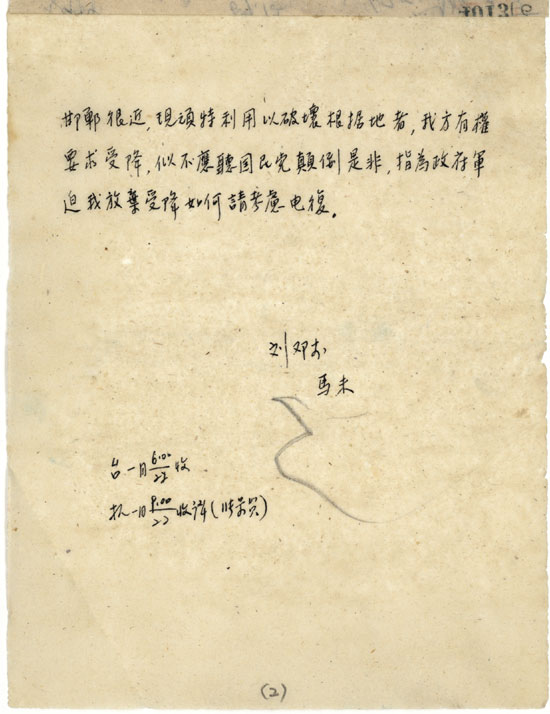 邯鄲很近,現頑特利用以破壞根据地者,我方有權
要求受降,似不應聽国民党顛倒是非,指為政府軍
迫我放棄受降如何請考慮电復。
刘邓
馬未
台一月6:00/22收
一月9:00/22收譯
(2)